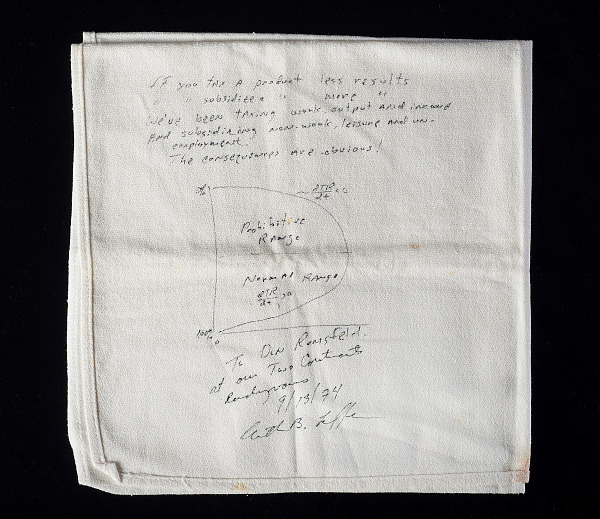 If you tax a product less results
" " subsidize " " more "
We've been taxing work, output and income
and subsidizing non-work, leisure and un-
employment.
The consequences are obvious!
∂TR/∂t <0
Prohibitive
Range
Normal Range
∂TR/∂t >0
100%
0
To Don Rumsfeld
at our Two Continents
Rendezvous
9/13/74
Arthur B. Laffer